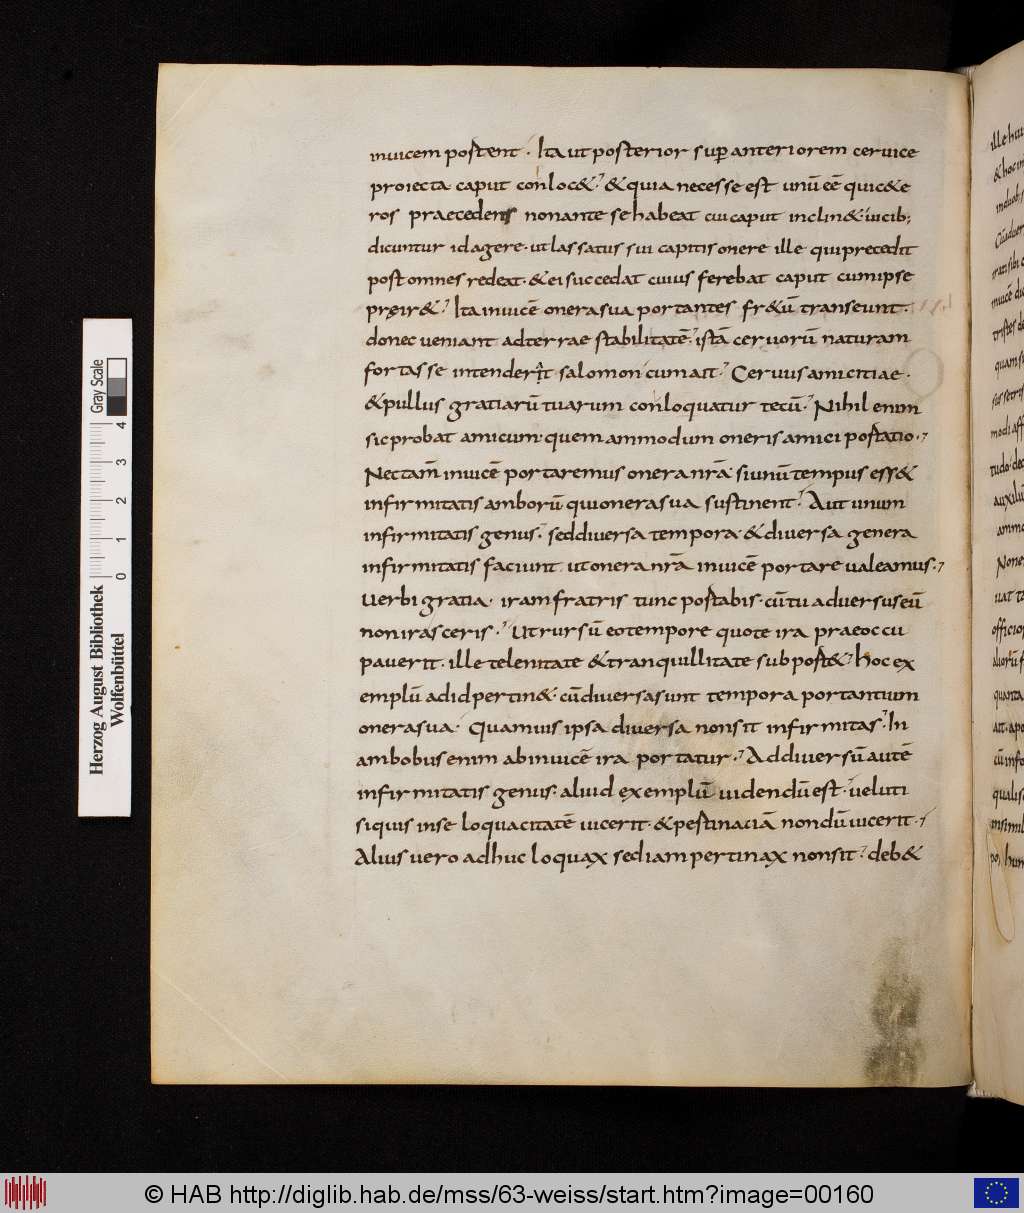 inuicem postent · Ita ut posterior sup anteriorem ceruice
proiecta caput conloc& · & quia necesse est unū eē qui c&e
ros praecedens non ante se habeat cui caput inclin& uicib;
dicuntur id agere · ut lassatus sui capitis onere ille qui precedit
post omnes redeat · & ei succedat cuius ferebat caput cum ipse
preir& · Ita inuicē onera sua portantes fr&ū transeunt ·
donec ueniant ad terrae stabilitatē · istā ceruorū naturam
fortasse intenderit salomon cum ait · Ceruus amicitiae ·
& pullus gratiarū tuarum conloquatur tecū · Nihil enim
sic probat amicum quemammodum oneris amici postatio ·
Nec tam inuicē portaremus onera nrā si unū tempus ess&
infirmitatis amborū qui onera sua sustinent · Aut unum
infirmitatis genus · sed diuersa tempora · & diuersa genera
infirmitatis faciunt ut onera nrā inuicē portare ualeamus ·
Uerbi gratia · iram fratris tunc postabis · cū tu aduersus eū
non irasceris · Ut rursū eo tempore quo te ira praeoccu
pauerit · ille te lenitate & tranquillitate subpost& · hoc ex
emplū ad id pertin& · cū diuersa sunt tempora portantium
onera sua · Quamuis ipsa diuersa non sit infirmitas · In
ambobus enim ab inuicē ira portatur · Ad diuersū autē
infirmitatis genus · aliud exemplū uidendū est · ueluti
si quis in se loquacitatē uicerit · & pestinaciā nondū uicerit ·
Alius uero adhuc loquax sed iam pertinax non sit · deb&
ille hui
& hoc in
Gray Scale
4
3
2
1
0
Herzog August Bibliothek
Wolfenbüttel
© HAB http://diglib.hab.de/mss/63-weiss/start.htm?image=00160